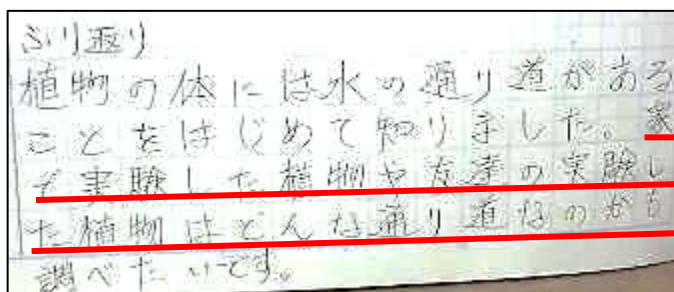 ふり返り
植物の体には水の通り道がある
ことをはじめて知りました。家
で実験した植物や友達の実験し
た植物はどんな通り道なのかも
調べたいです。